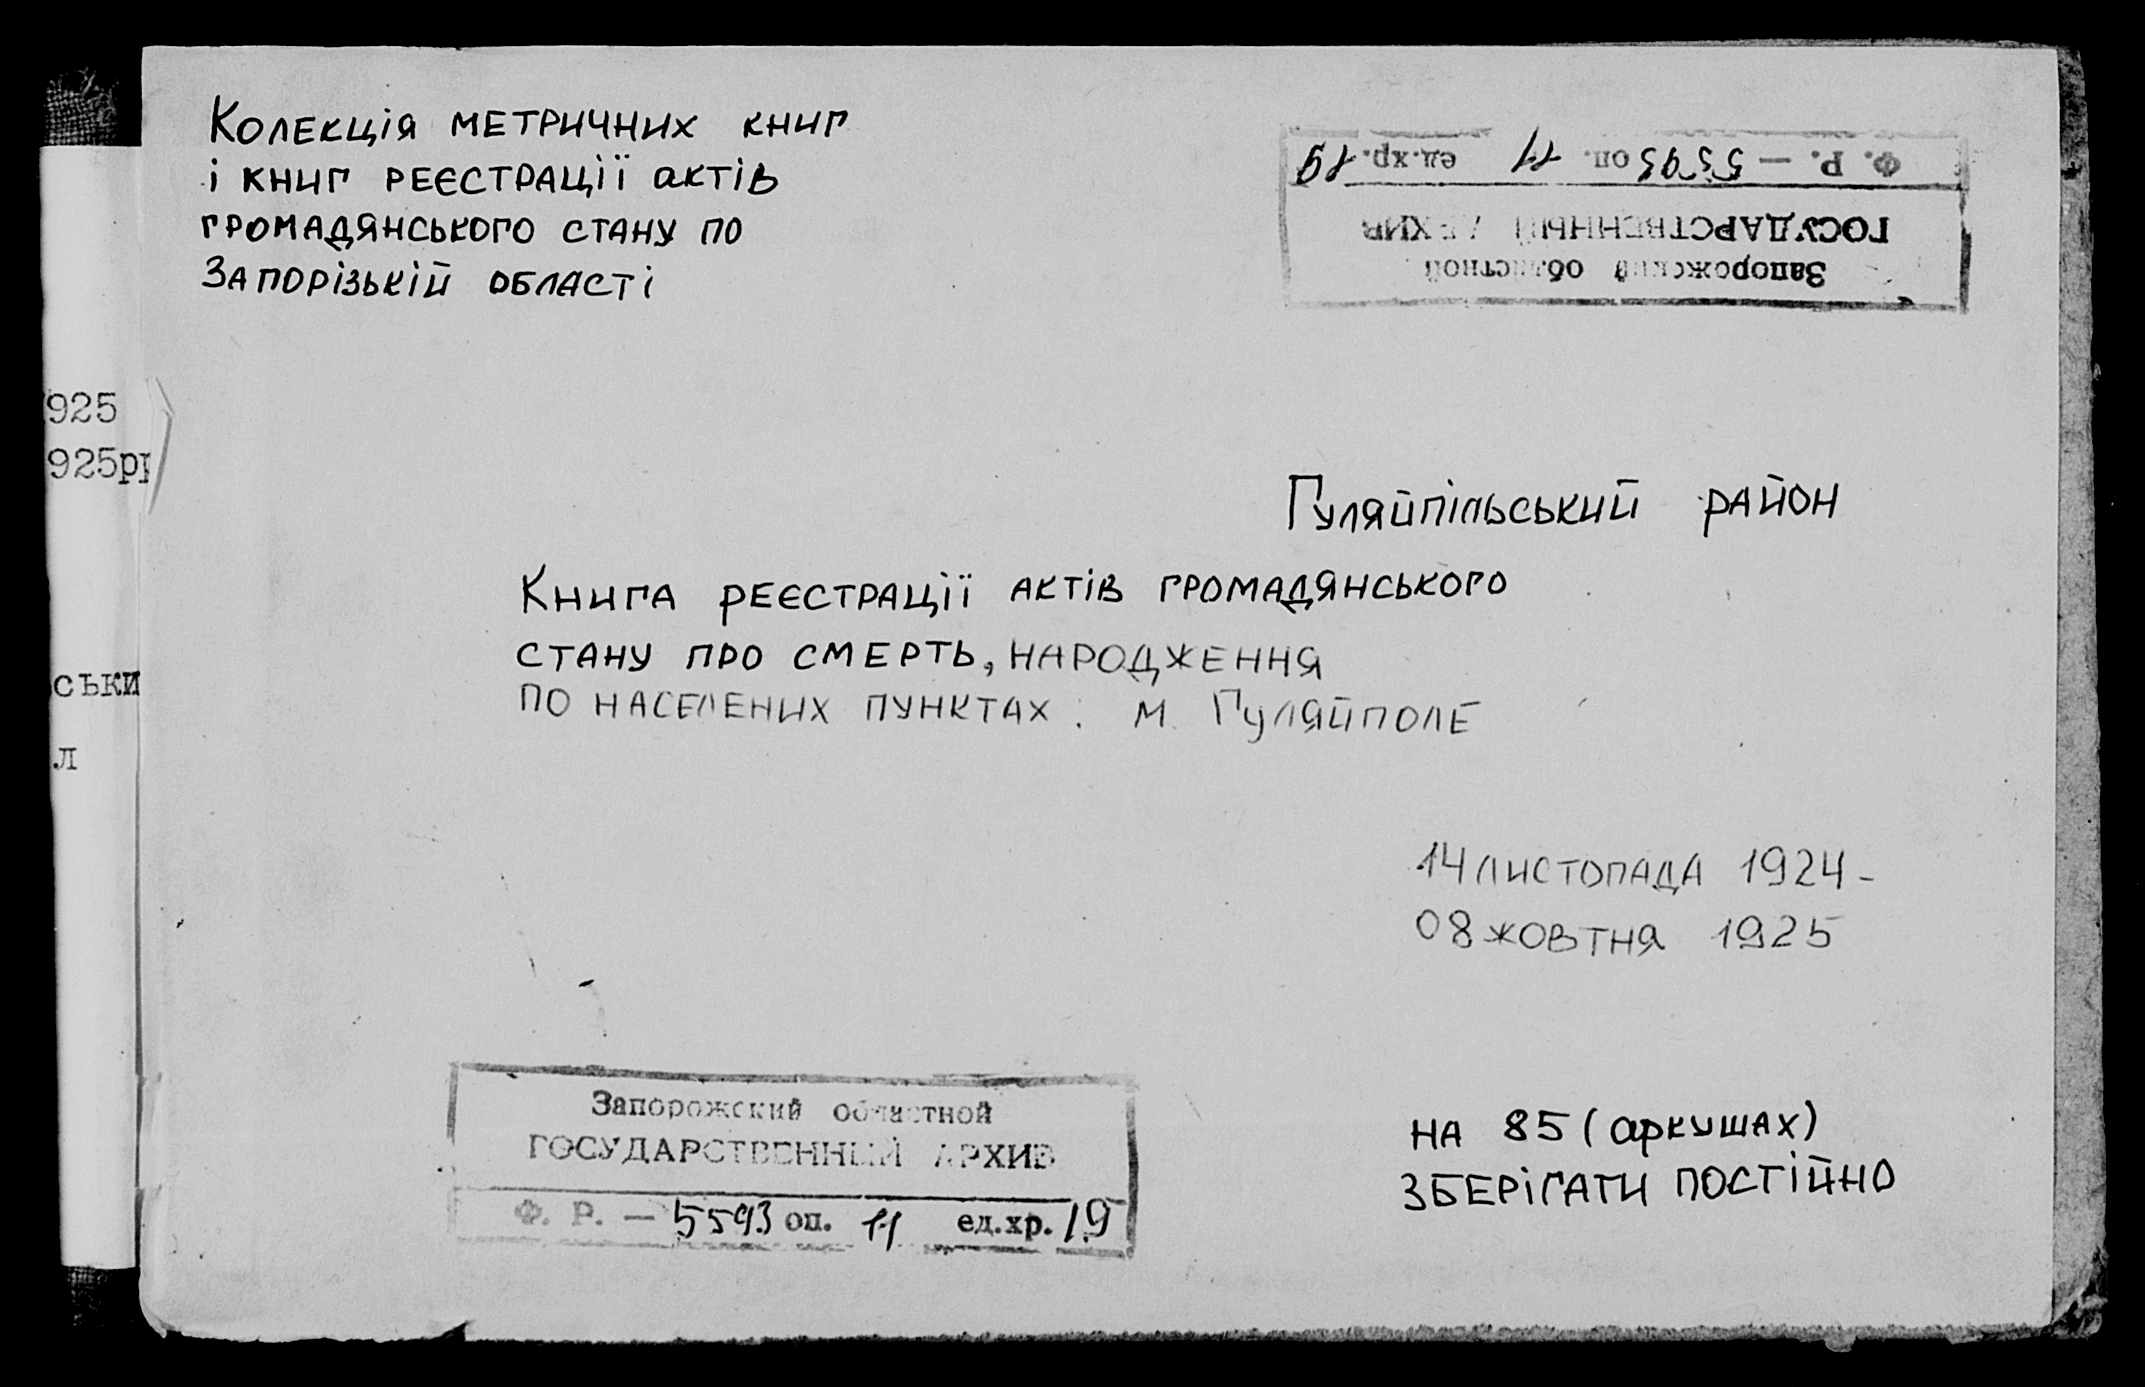 Колекція метричних книг
і книг реєстрації актів
громадянського стану по
Запорізькій області
Ф. Р. — 5593 оп. 11 ед.хр. 19
ГОСУДАРСТВЕННЫЙ АРХИВ
Запорожский областной
925
925рр
ськи
л
Гуляйпільський район
Книга реєстрації актів громадянського
стану про смерть, народження
по населених пунктах: м. Гуляйполе
14 листопада 1924 -
08 жовтня 1925
Запорожский областной
ГОСУДАРСТВЕННЫЙ АРХИВ
Ф. Р. — 5593 оп. 11 ед.хр. 19
на 85 (аркушах)
зберігати постійно